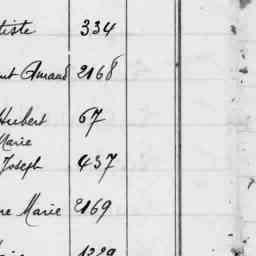 tiste 334
Amand 2168
Hubert 67
Marie
Joseph 437
Marie 2169